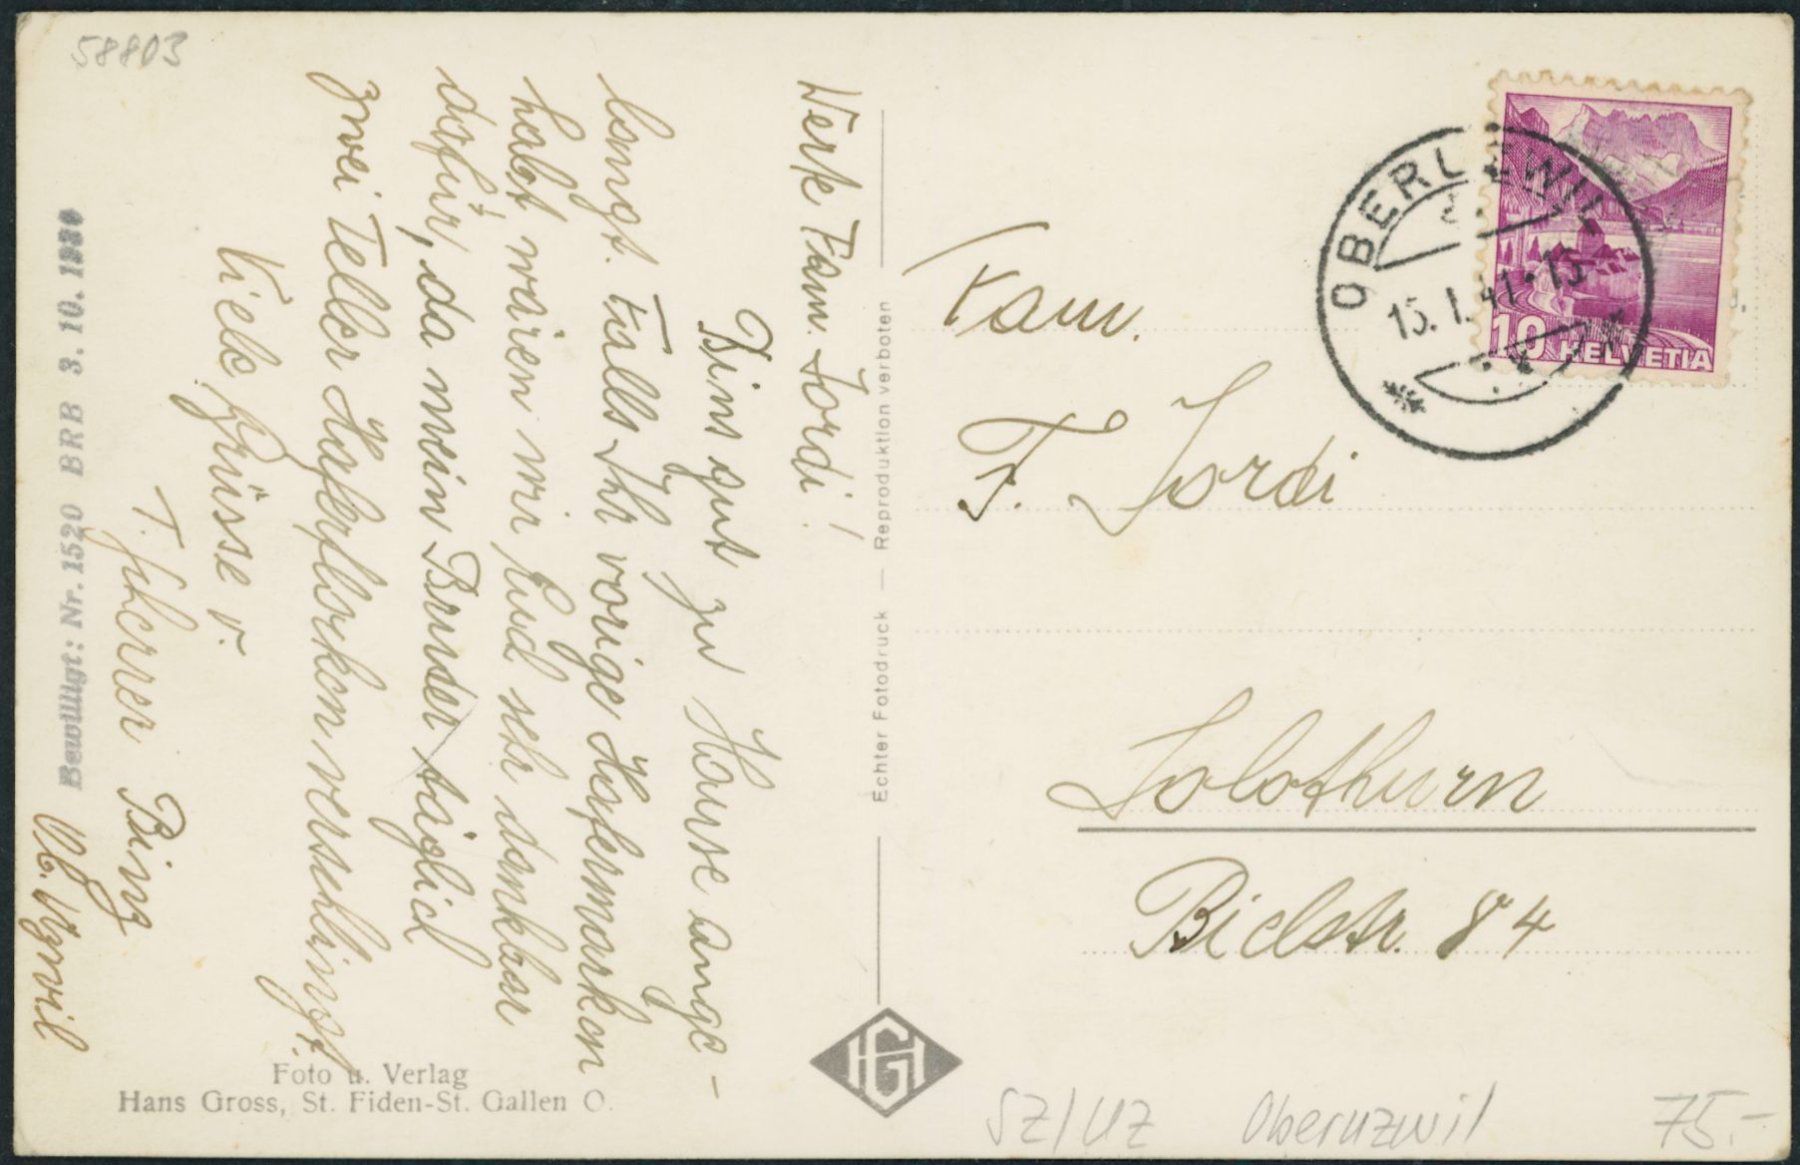 58803
Werte Fam. Jordi!
Bins gut zu Hause ange-
langt. Falls Ihr vorige Hafermarken
habt, wären wir Euch sehr dankbar
dafür, da mein Bruder täglich
zwei Teller Haferflocken verschlingt.
Viele Grüsse v.
Bing
Ob. Uzwil
Bewilligt: Nr. 1520 BRB 3. 10. 19
Foto u. Verlag
Hans Gross, St. Fiden-St. Gallen O.
Echter Fotodruck — Reproduktion verboten
HGH
10 HELVETIA
15. I. 41
Fam.
F. Jordi
Solothurn
Bielstr. 84
SZ/UZ Obernzwil 75.-